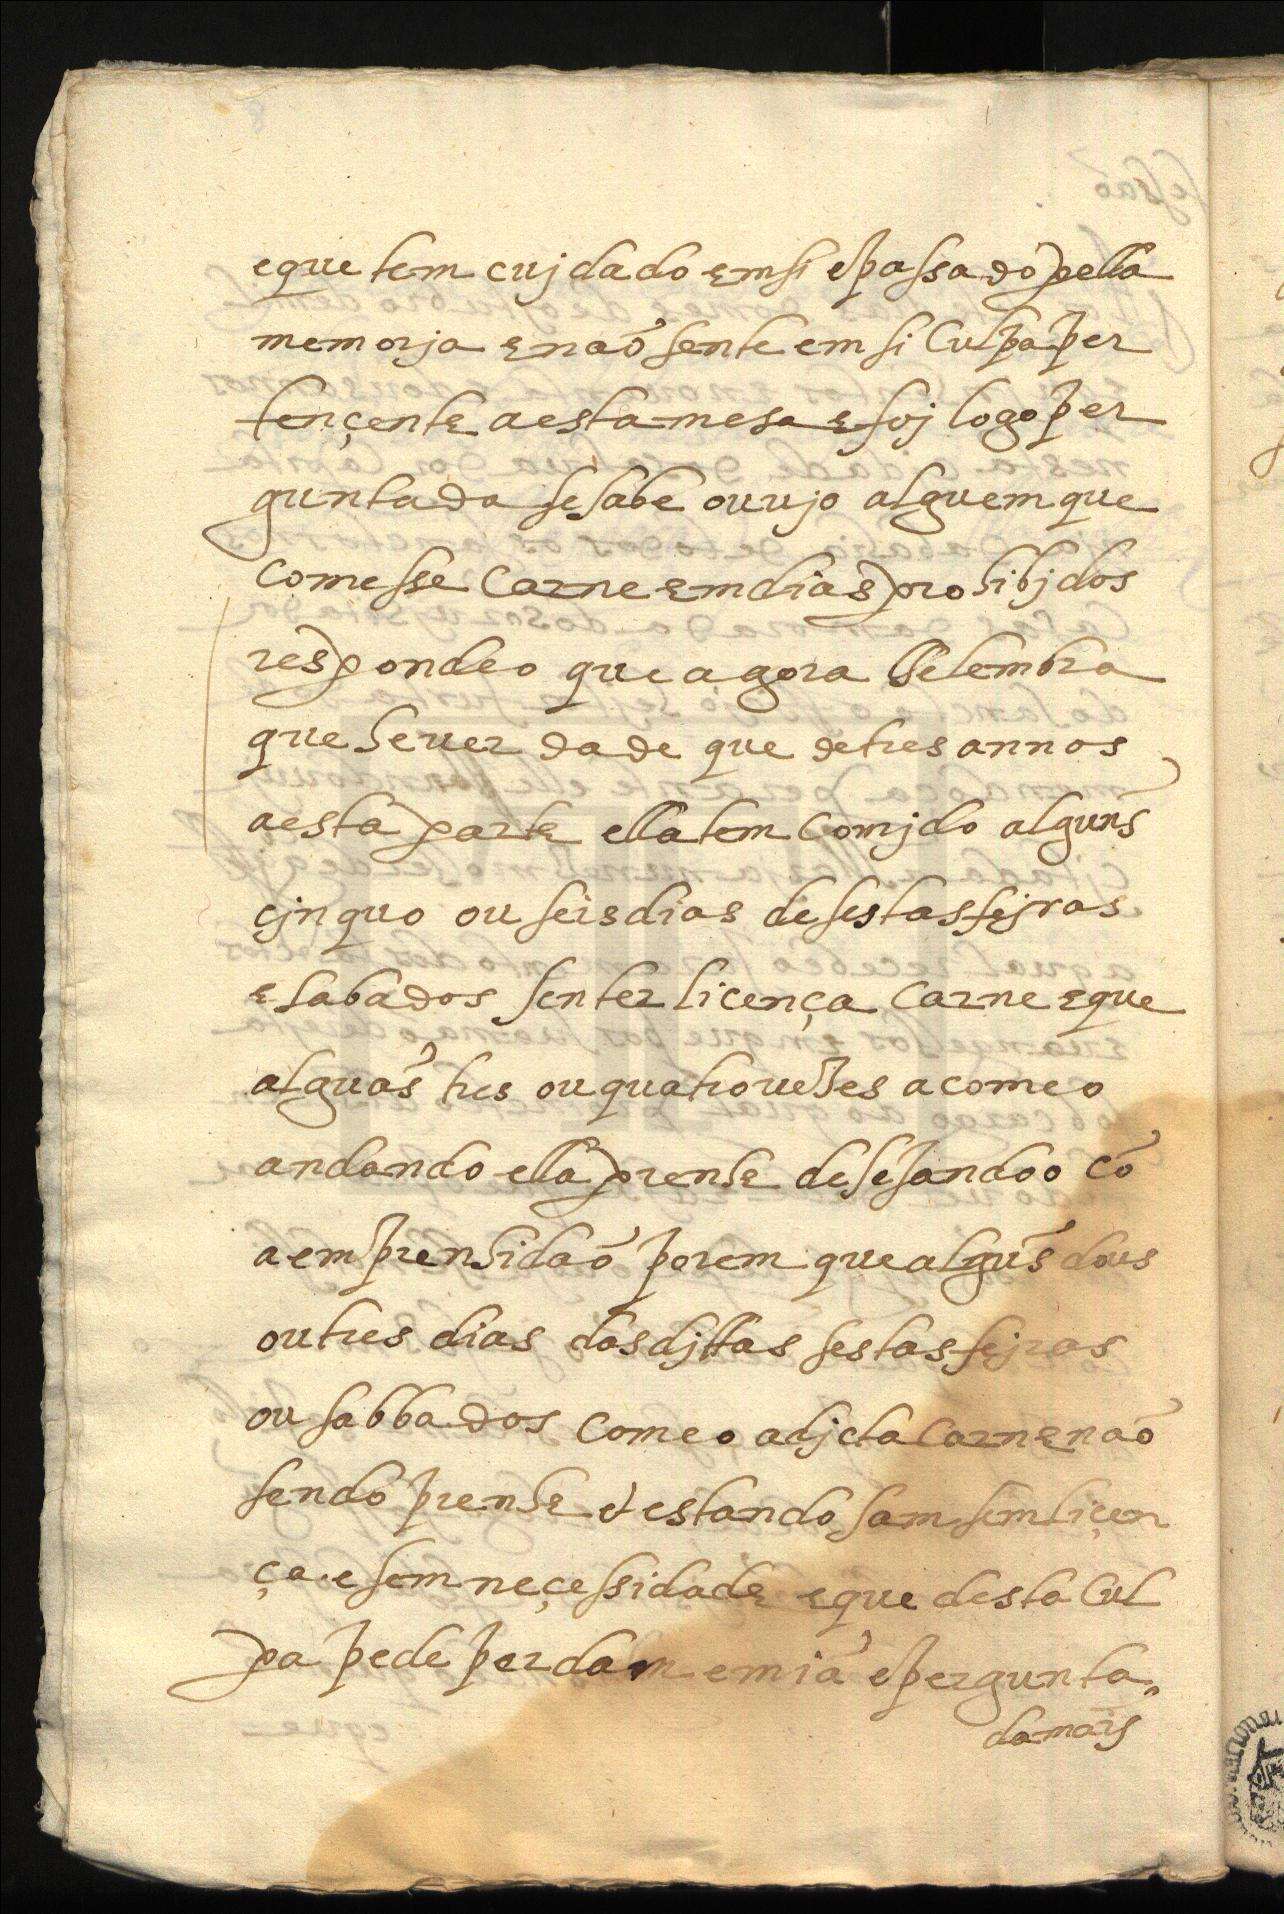 e que tem cujdado em si e passado pella
memorja e naõ sente em si Culpa per
tençente a esta mesa e foj logo per
guntada se sabe ou ujo alguem que
Comesse Carne em dias prohibjdos
respondeo que agora lhe lembra
que he uerdade que de tres annos
a esta parte ella tem Comjdo alguns
cjnquo ou seis dias de sestas fejras
e sabados sen ter licença Carne e que
alguãs tres ou quatro uezes a comeo
andando ella prenhe desejandoo cõ
a emprenhidaõ porem que algũs dous
ou tres dias das djttas sestas fejras
ou sabbados Comeo a djcta Carne naõ
sendo prenhe et estando sam sem licen
ça. e sem neçessidade e que desta Cul
pa pede perdam e mia e pergunta,,
da mais